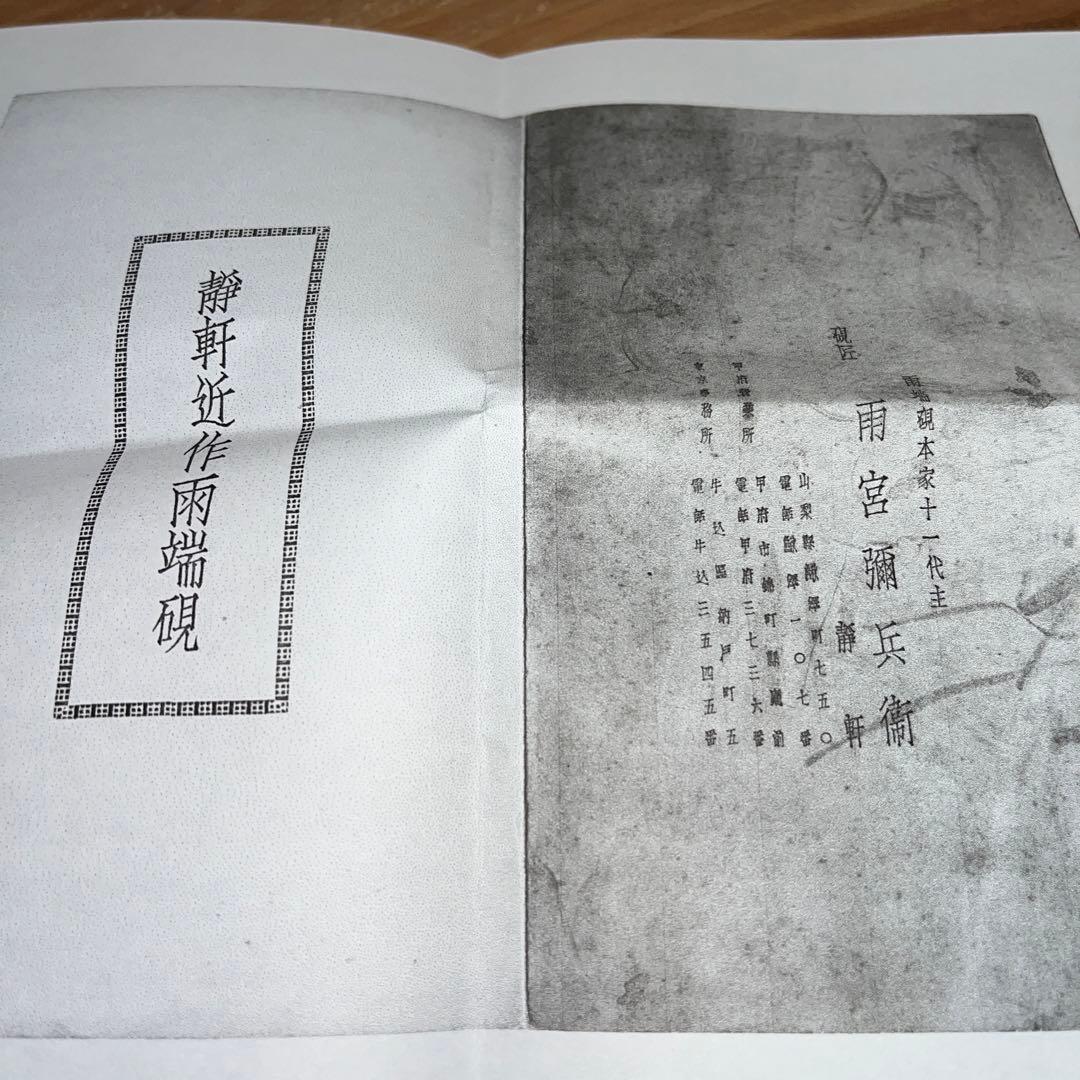 雨端硯本家十一代主
硯匠 雨宮彌兵衞
靜軒
山梨縣鰍澤町七五〇
電話鰍澤一〇七番
甲府營業所
甲府市錦町縣廳前
電話甲府三七三六番
東京事務所
牛込區納戸町五
電話牛込三五四五番
靜軒近作雨端硯